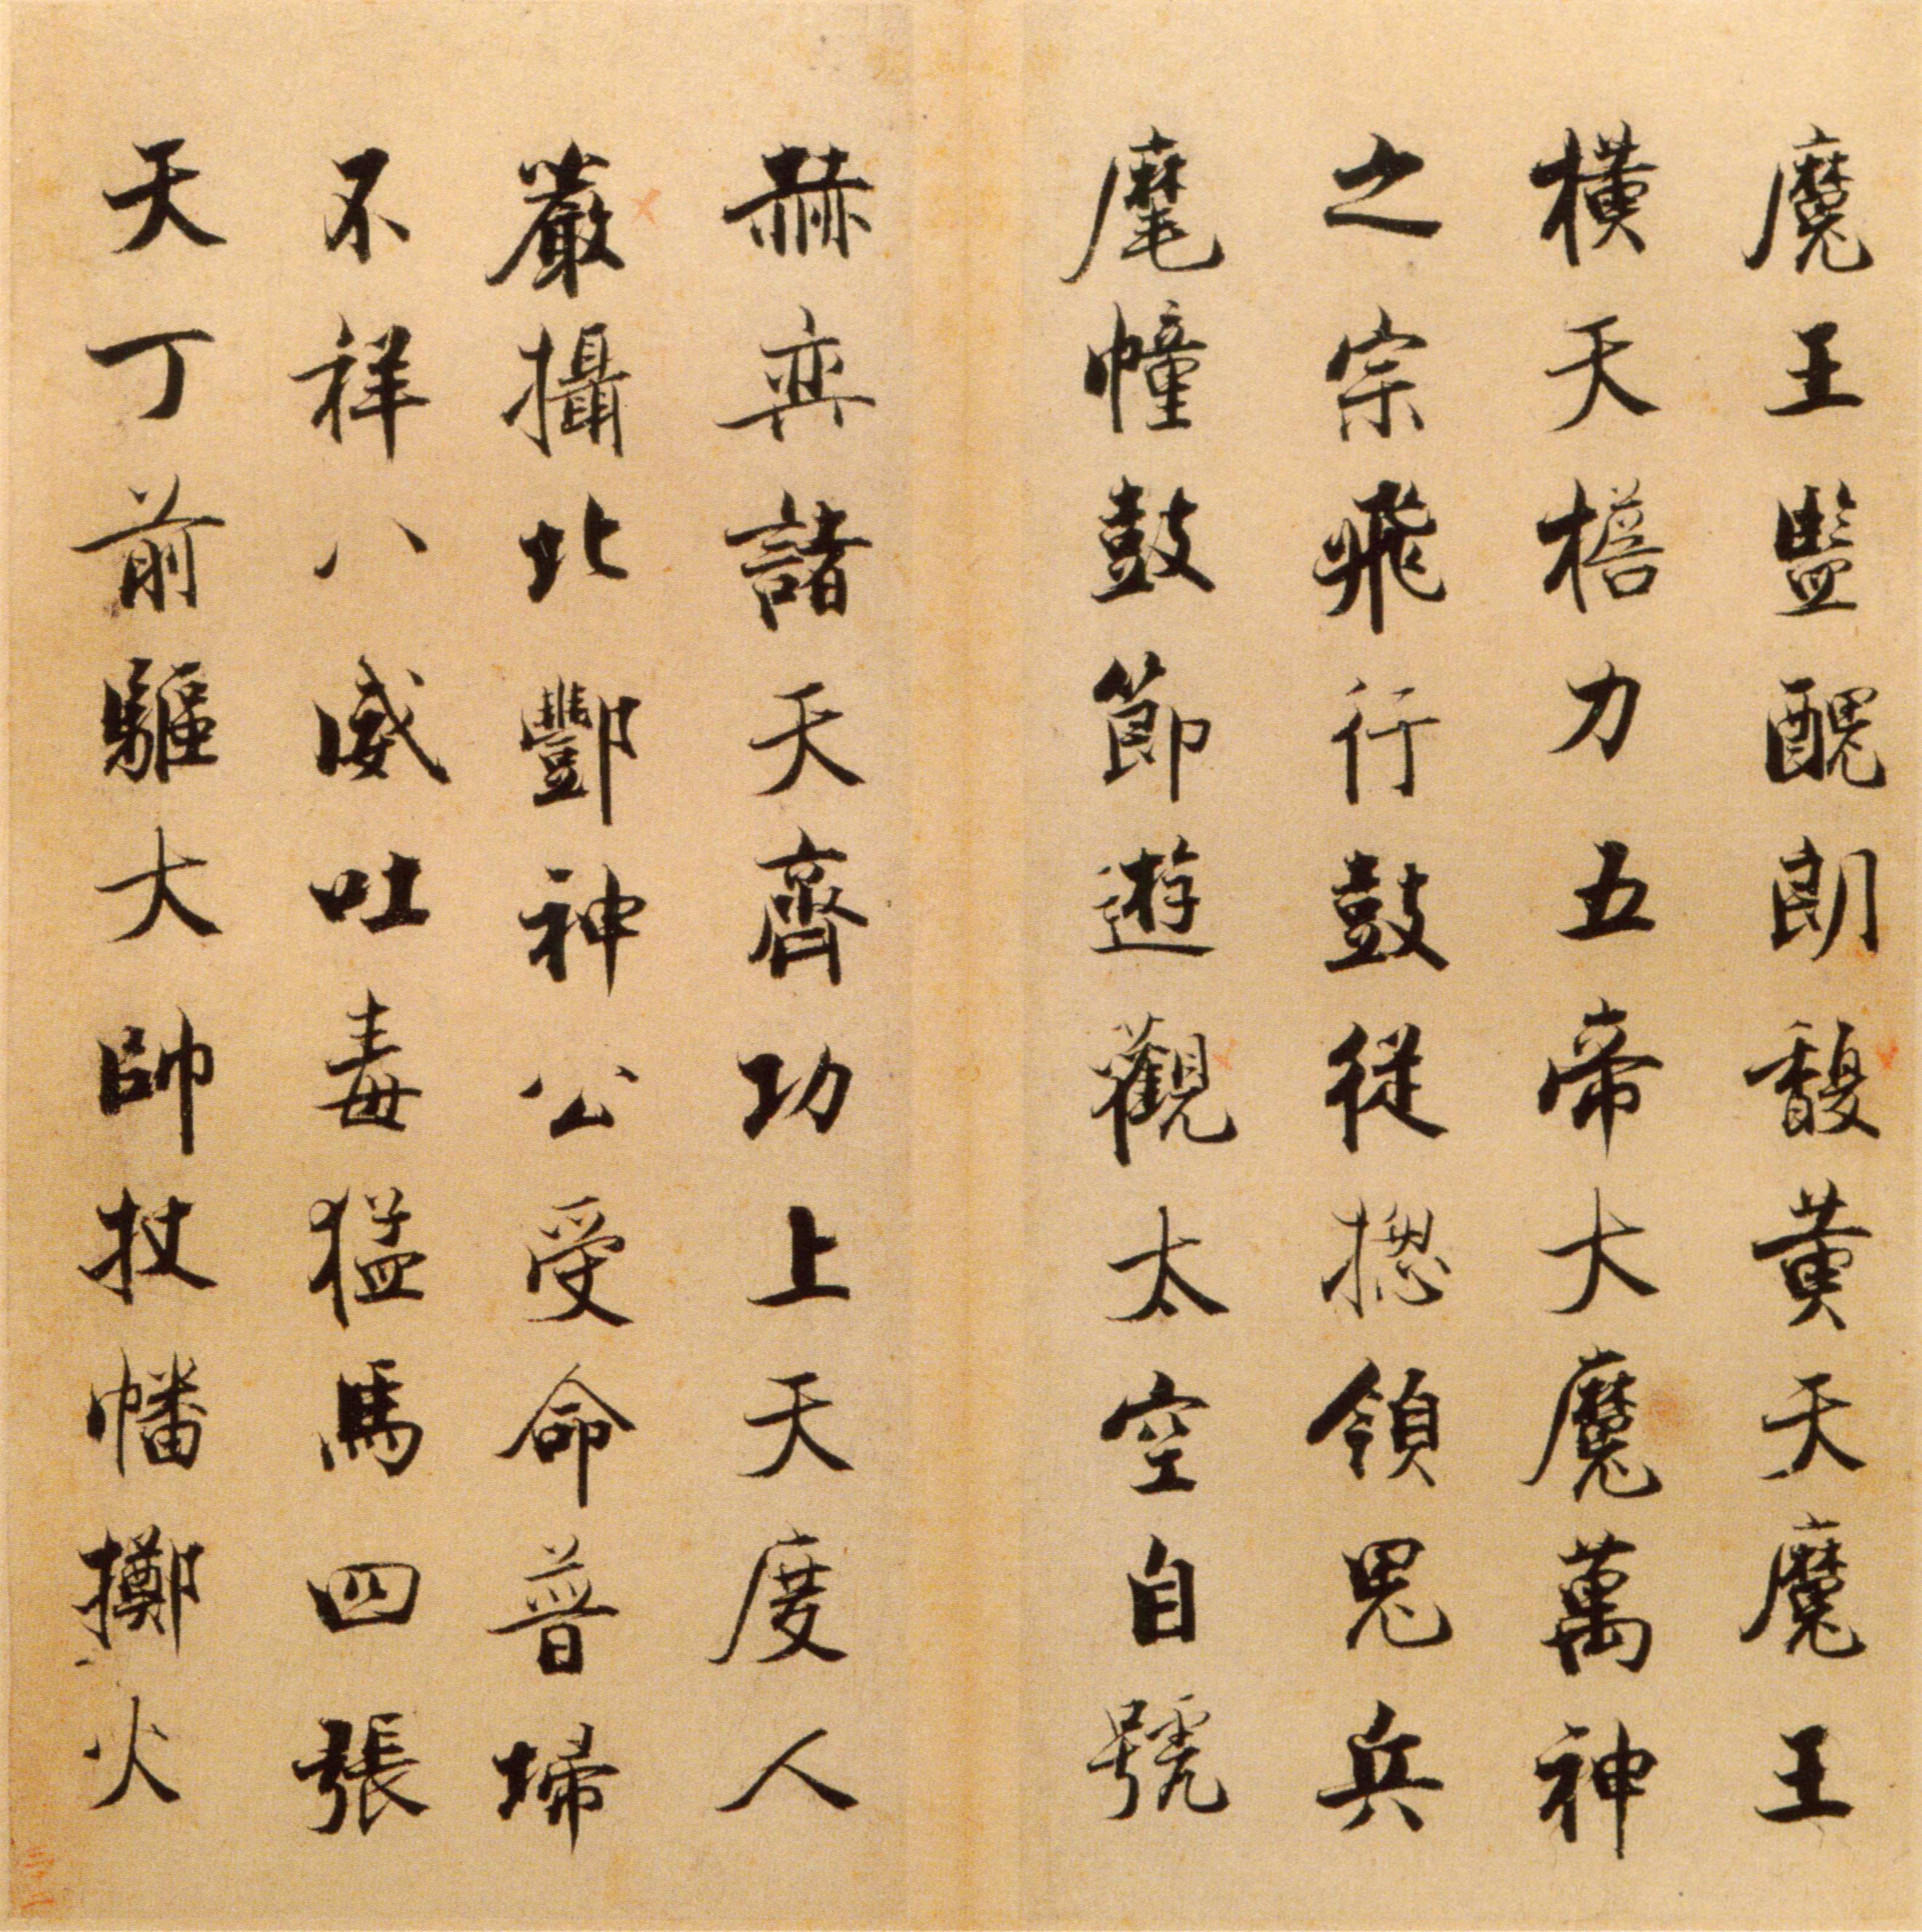 魔王監醜朗馥黃天魔王
橫天檐力五帝大魔萬神
之宗飛行鼓從揔領鬼兵
麾幢鼓節遊觀太空自號
赫弈諸天齊功上天度人
嚴攝北酆神公受命普埽
不祥八威吐毒猛馬四張
天丁前驅大帥杖幡擲火